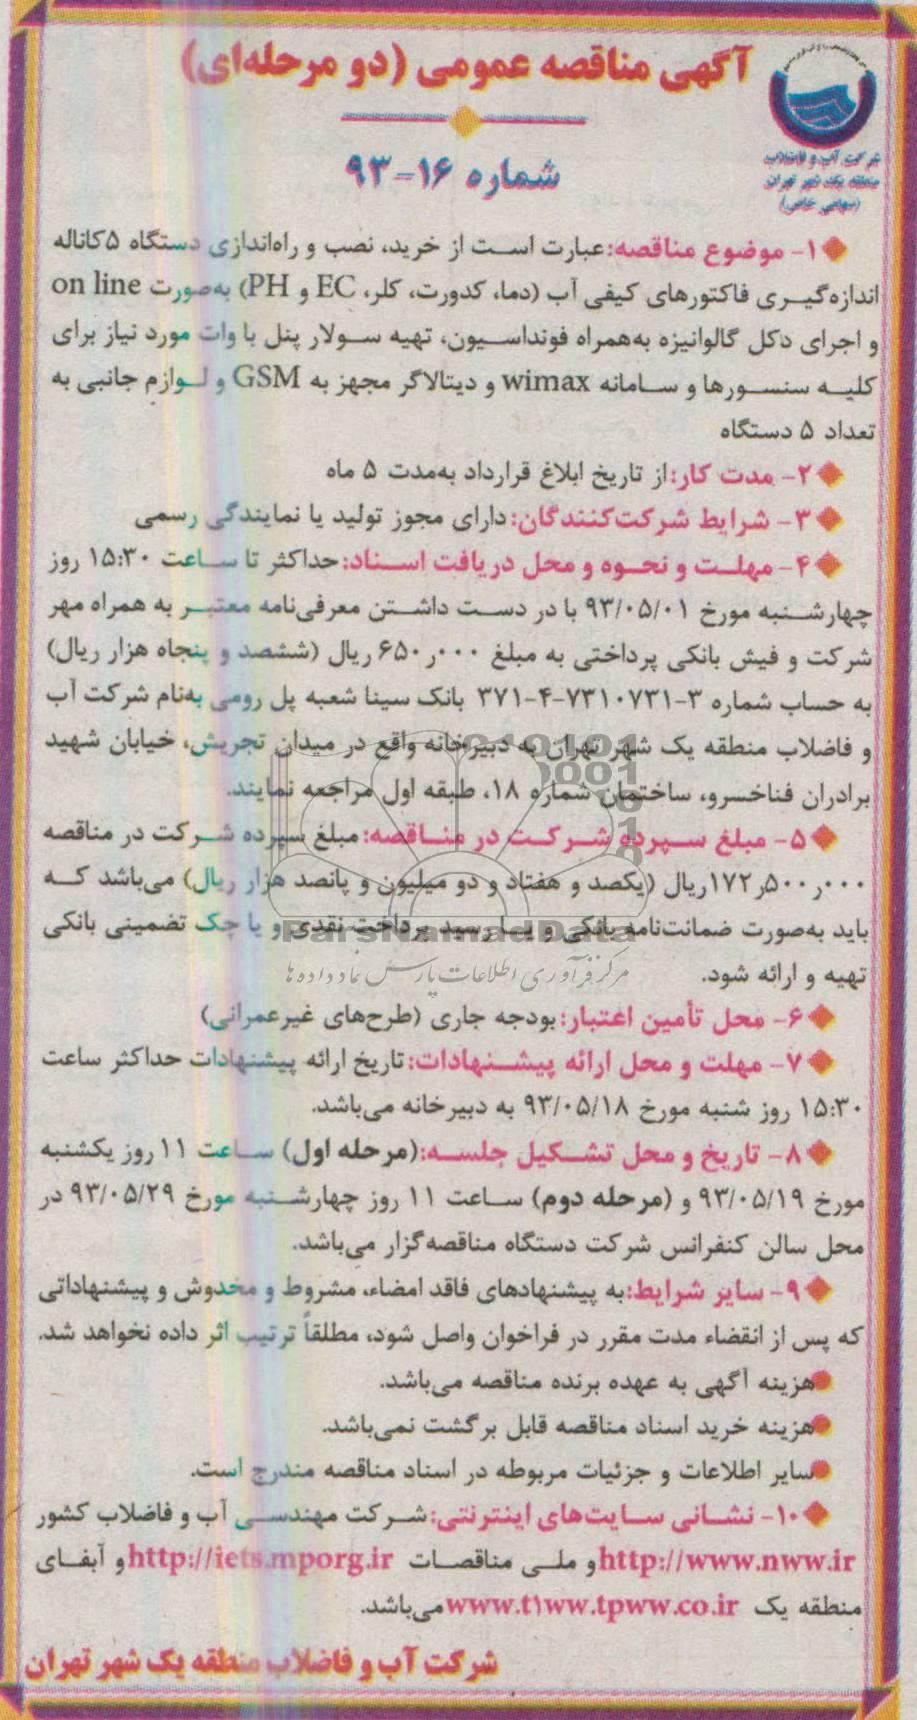 آگهی مناقصه عمومی (دو مرحله‌ای)
شرکت آب و فاضلاب
منطقه یک شهر تهران
(سهامی خاص)
شماره ۱۶-۹۳
۱- موضوع مناقصه: عبارت است از خرید، نصب و راه‌اندازی دستگاه ۵کاناله
اندازه‌گیری فاکتورهای کیفی آب (دما، کدورت، کلر، EC و PH) به‌صورت on line
و اجرای دکل گالوانیزه به‌همراه فونداسیون، تهیه سولار پنل با وات مورد نیاز برای
کلیه سنسورها و سامانه wimax و دیتالاگر مجهز به GSM و لوازم جانبی به
تعداد ۵ دستگاه
۲- مدت کار: از تاریخ ابلاغ قرارداد به‌مدت ۵ ماه
۳- شرایط شرکت‌کنندگان: دارای مجوز تولید یا نمایندگی رسمی
۴- مهلت و نحوه و محل دریافت اسناد: حداکثر تا ساعت ۱۵:۳۰ روز
چهارشنبه مورخ ۹۳/۰۵/۰۱ با در دست داشتن معرفی‌نامه معتبر به همراه مهر
شرکت و فیش بانکی پرداختی به مبلغ ۶۵۰ر۰۰۰ ریال (ششصد و پنجاه هزار ریال)
به حساب شماره ۳-۷۳۱۰۷۳۱-۴-۳۷۱ بانک سینا شعبه پل رومی به‌نام شرکت آب
و فاضلاب منطقه یک شهر تهران به دبیرخانه واقع در میدان تجریش، خیابان شهید
برادران فناخسرو، ساختمان شماره ۱۸، طبقه اول مراجعه نمایند.
۵- مبلغ سپرده شرکت در مناقصه: مبلغ سپرده شرکت در مناقصه
۱۷۲ر۵۰۰ر۰۰۰ ریال (یکصد و هفتاد و دو میلیون و پانصد هزار ریال) می‌باشد که
باید به‌صورت ضمانت‌نامه بانکی و یا رسید پرداخت نقدی و یا چک تضمینی بانکی
ParsNamadData
تهیه و ارائه شود.
مرکز فرآوری اطلاعات پارس نماد داده ها
۶- محل تأمین اعتبار: بودجه جاری (طرح‌های غیرعمرانی)
۷- مهلت و محل ارائه پیشنهادات: تاریخ ارائه پیشنهادات حداکثر ساعت
۱۵:۳۰ روز شنبه مورخ ۹۳/۰۵/۱۸ به دبیرخانه می‌باشد.
۸- تاریخ و محل تشکیل جلسه: (مرحله اول) ساعت ۱۱ روز یکشنبه
مورخ ۹۳/۰۵/۱۹ و (مرحله دوم) ساعت ۱۱ روز چهارشنبه مورخ ۹۳/۰۵/۲۹ در
محل سالن کنفرانس شرکت دستگاه مناقصه‌گزار می‌باشد.
۹- سایر شرایط: به پیشنهادهای فاقد امضاء، مشروط و مخدوش و پیشنهاداتی
که پس از انقضاء مدت مقرر در فراخوان واصل شود، مطلقاً ترتیب اثر داده نخواهد شد.
هزینه آگهی به عهده برنده مناقصه می‌باشد.
هزینه خرید اسناد مناقصه قابل برگشت نمی‌باشد.
سایر اطلاعات و جزئیات مربوطه در اسناد مناقصه مندرج است.
۱۰- نشانی سایت‌های اینترنتی: شرکت مهندسی آب و فاضلاب کشور
http://www.nww.ir و ملی مناقصات http://iets.mporg.ir و آبفای
منطقه یک www.t۱ww.tpww.co.ir می‌باشد.
شرکت آب و فاضلاب منطقه یک شهر تهران